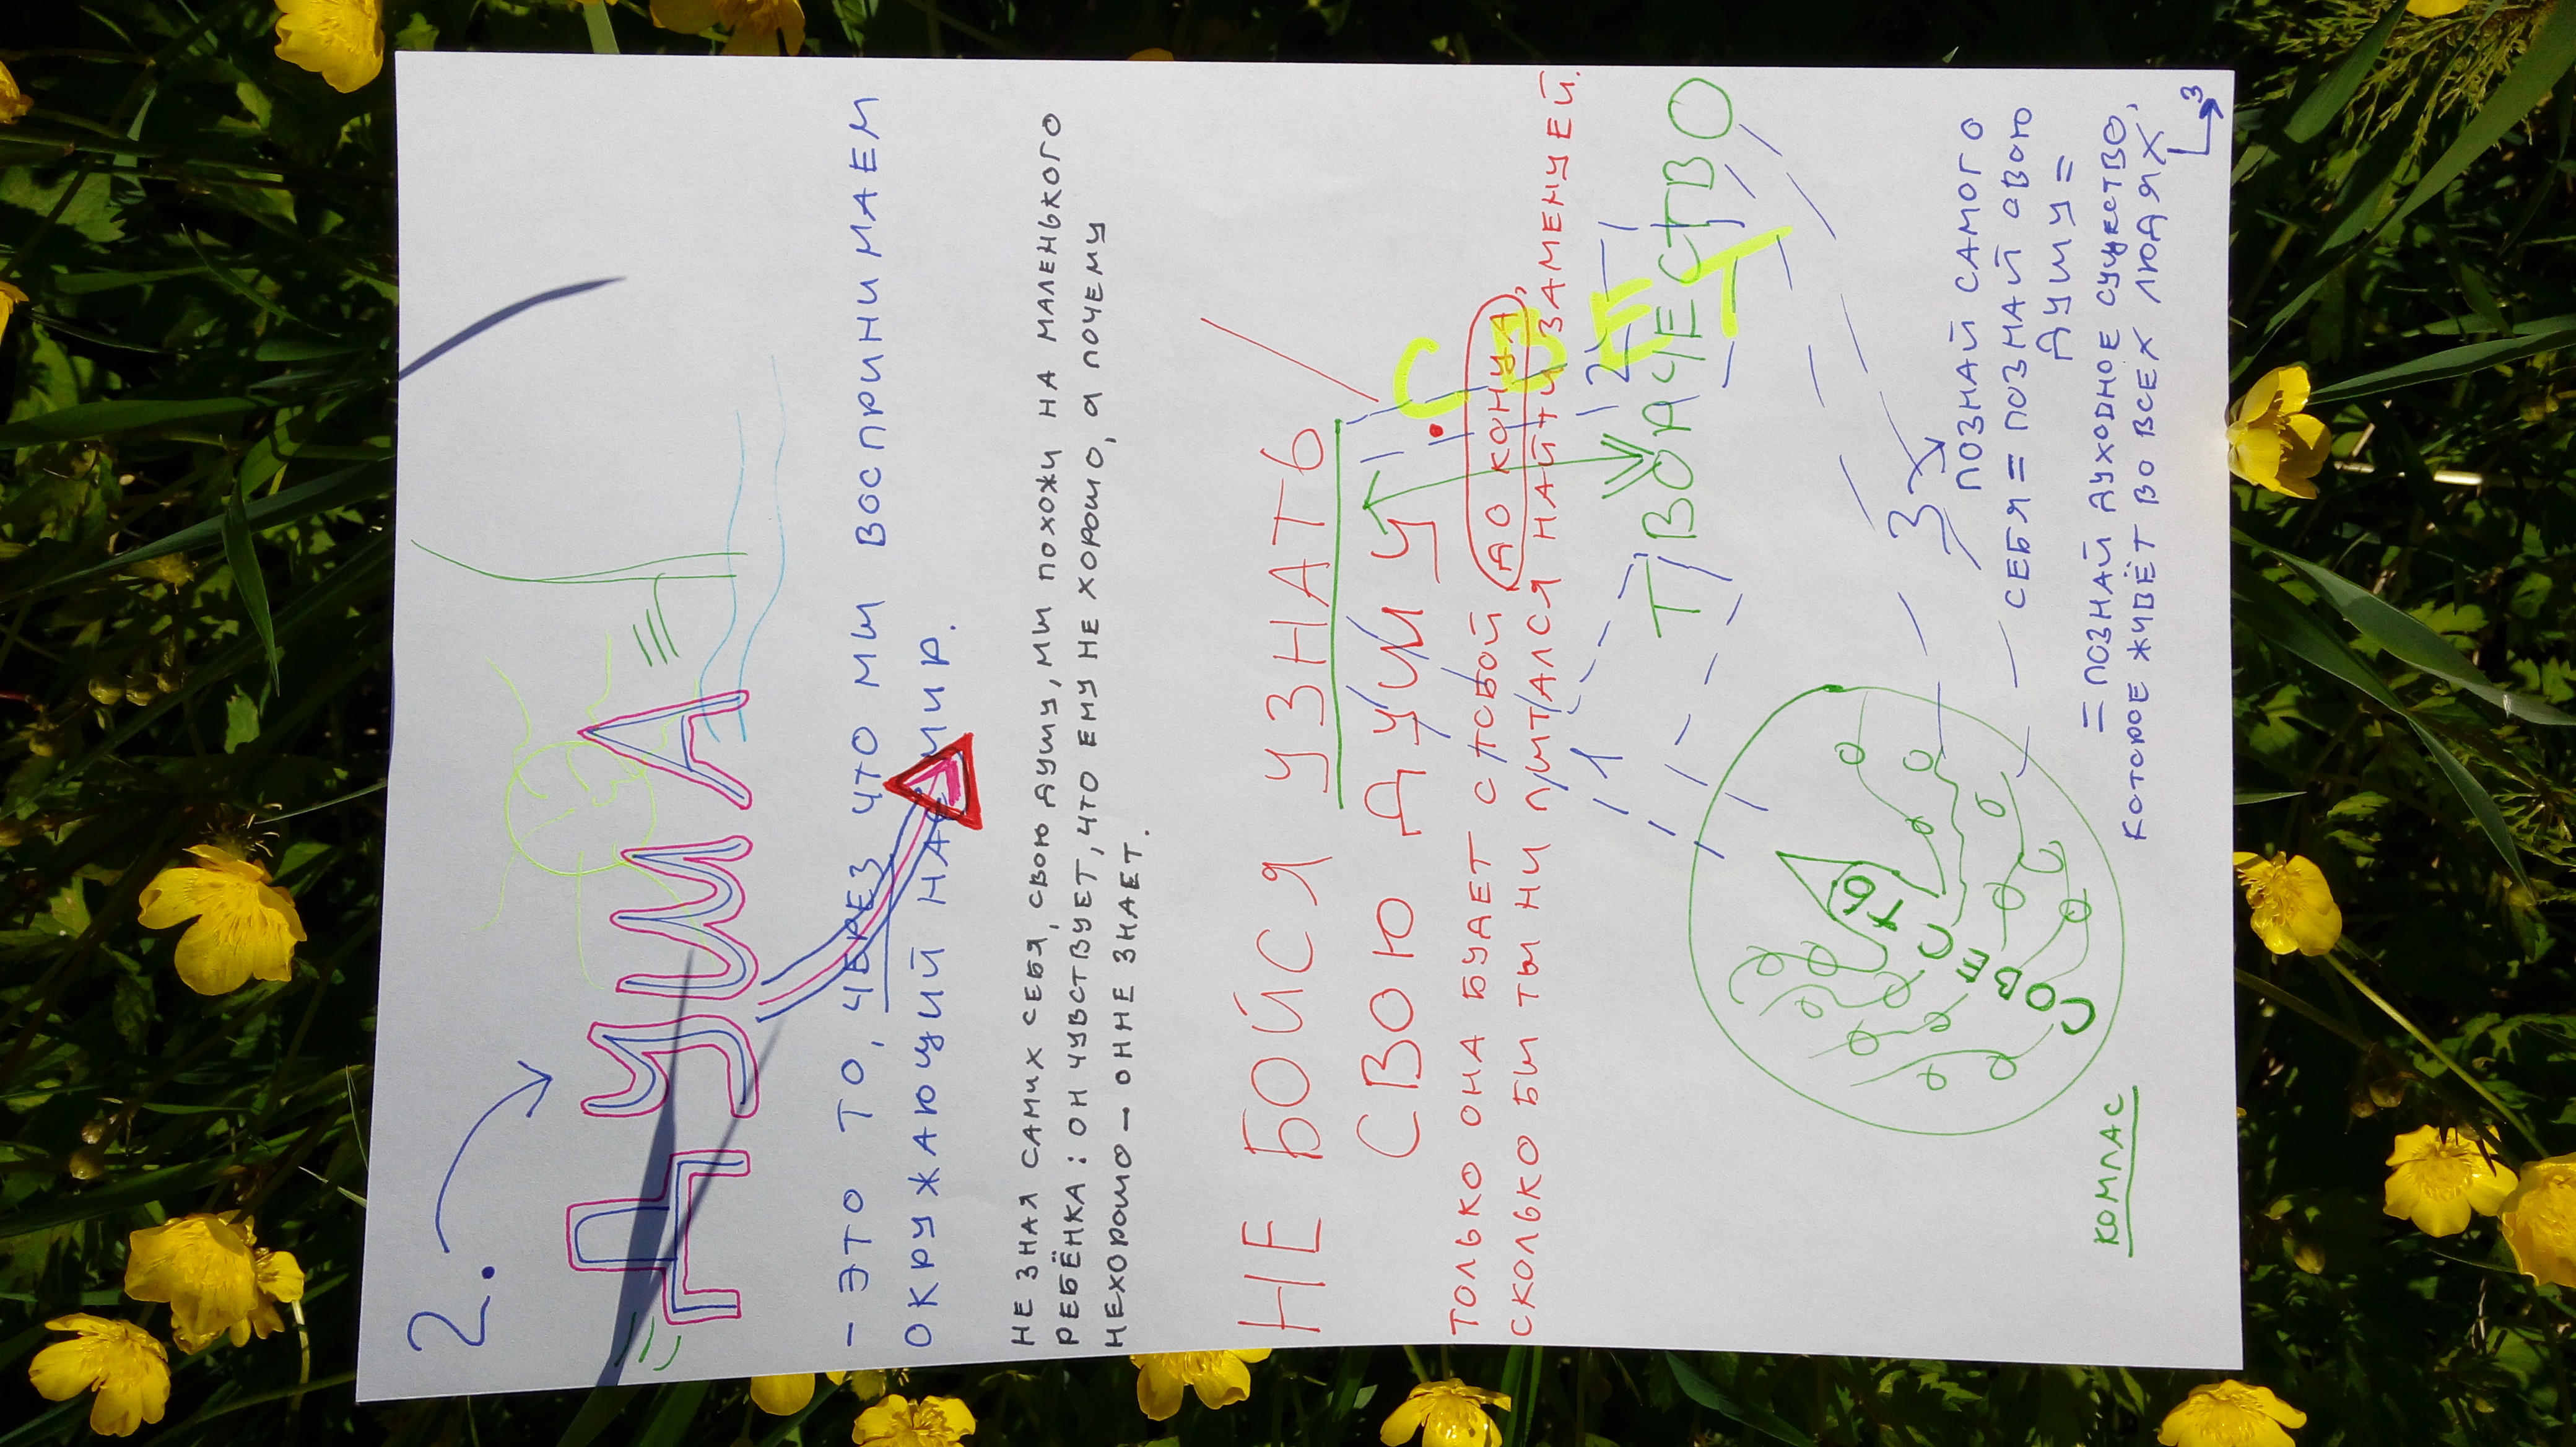 2.
ДУША
- ЭТО ТО, ЧЕРЕЗ ЧТО МЫ ВОСПРИНИМАЕМ
ОКРУЖАЮЩИЙ НАС МИР.
НЕ ЗНАЯ САМИХ СЕБЯ, СВОЮ ДУШУ, МЫ ПОХОЖИ НА МАЛЕНЬКОГО
РЕБЁНКА: ОН ЧУВСТВУЕТ, ЧТО ЕМУ НЕ ХОРОШО, А ПОЧЕМУ
НЕХОРОШО - ОН НЕ ЗНАЕТ.
НЕ БОЙСЯ УЗНАТЬ
СВОЮ ДУШУ.
ТОЛЬКО ОНА БУДЕТ С ТОБОЙ ДО КОНЦА,
СКОЛЬКО БЫ ТЫ НИ ПЫТАЛСЯ НАЙТИ ЗАМЕНУ ЕЙ.
СВЕТ
1
2
ТВОРЧЕСТВО
3
ПОЗНАЙ САМОГО
СЕБЯ = ПОЗНАЙ СВОЮ
ДУШУ =
= ПОЗНАЙ ДУХОВНОЕ СУЩЕСТВО,
КОТОРОЕ ЖИВЁТ ВО ВСЕХ ЛЮДЯХ.
СОВЕСТЬ
КОМПАС
3